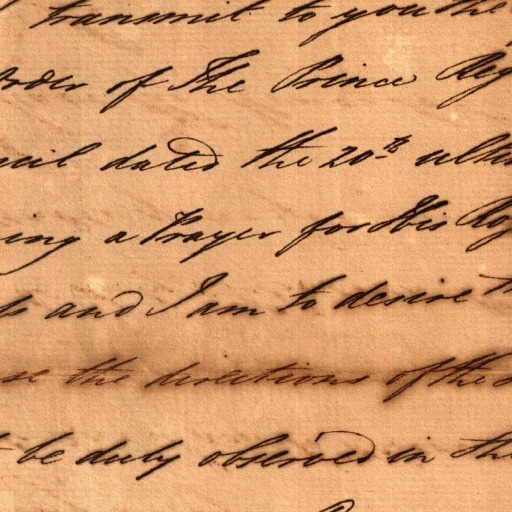 transmit to you the
Order of The Prince Reg
ncil dated the 20th ulti
ing a Prayer for His Roy
ls and I am to desire
se the directions of the
t be duly observed in the